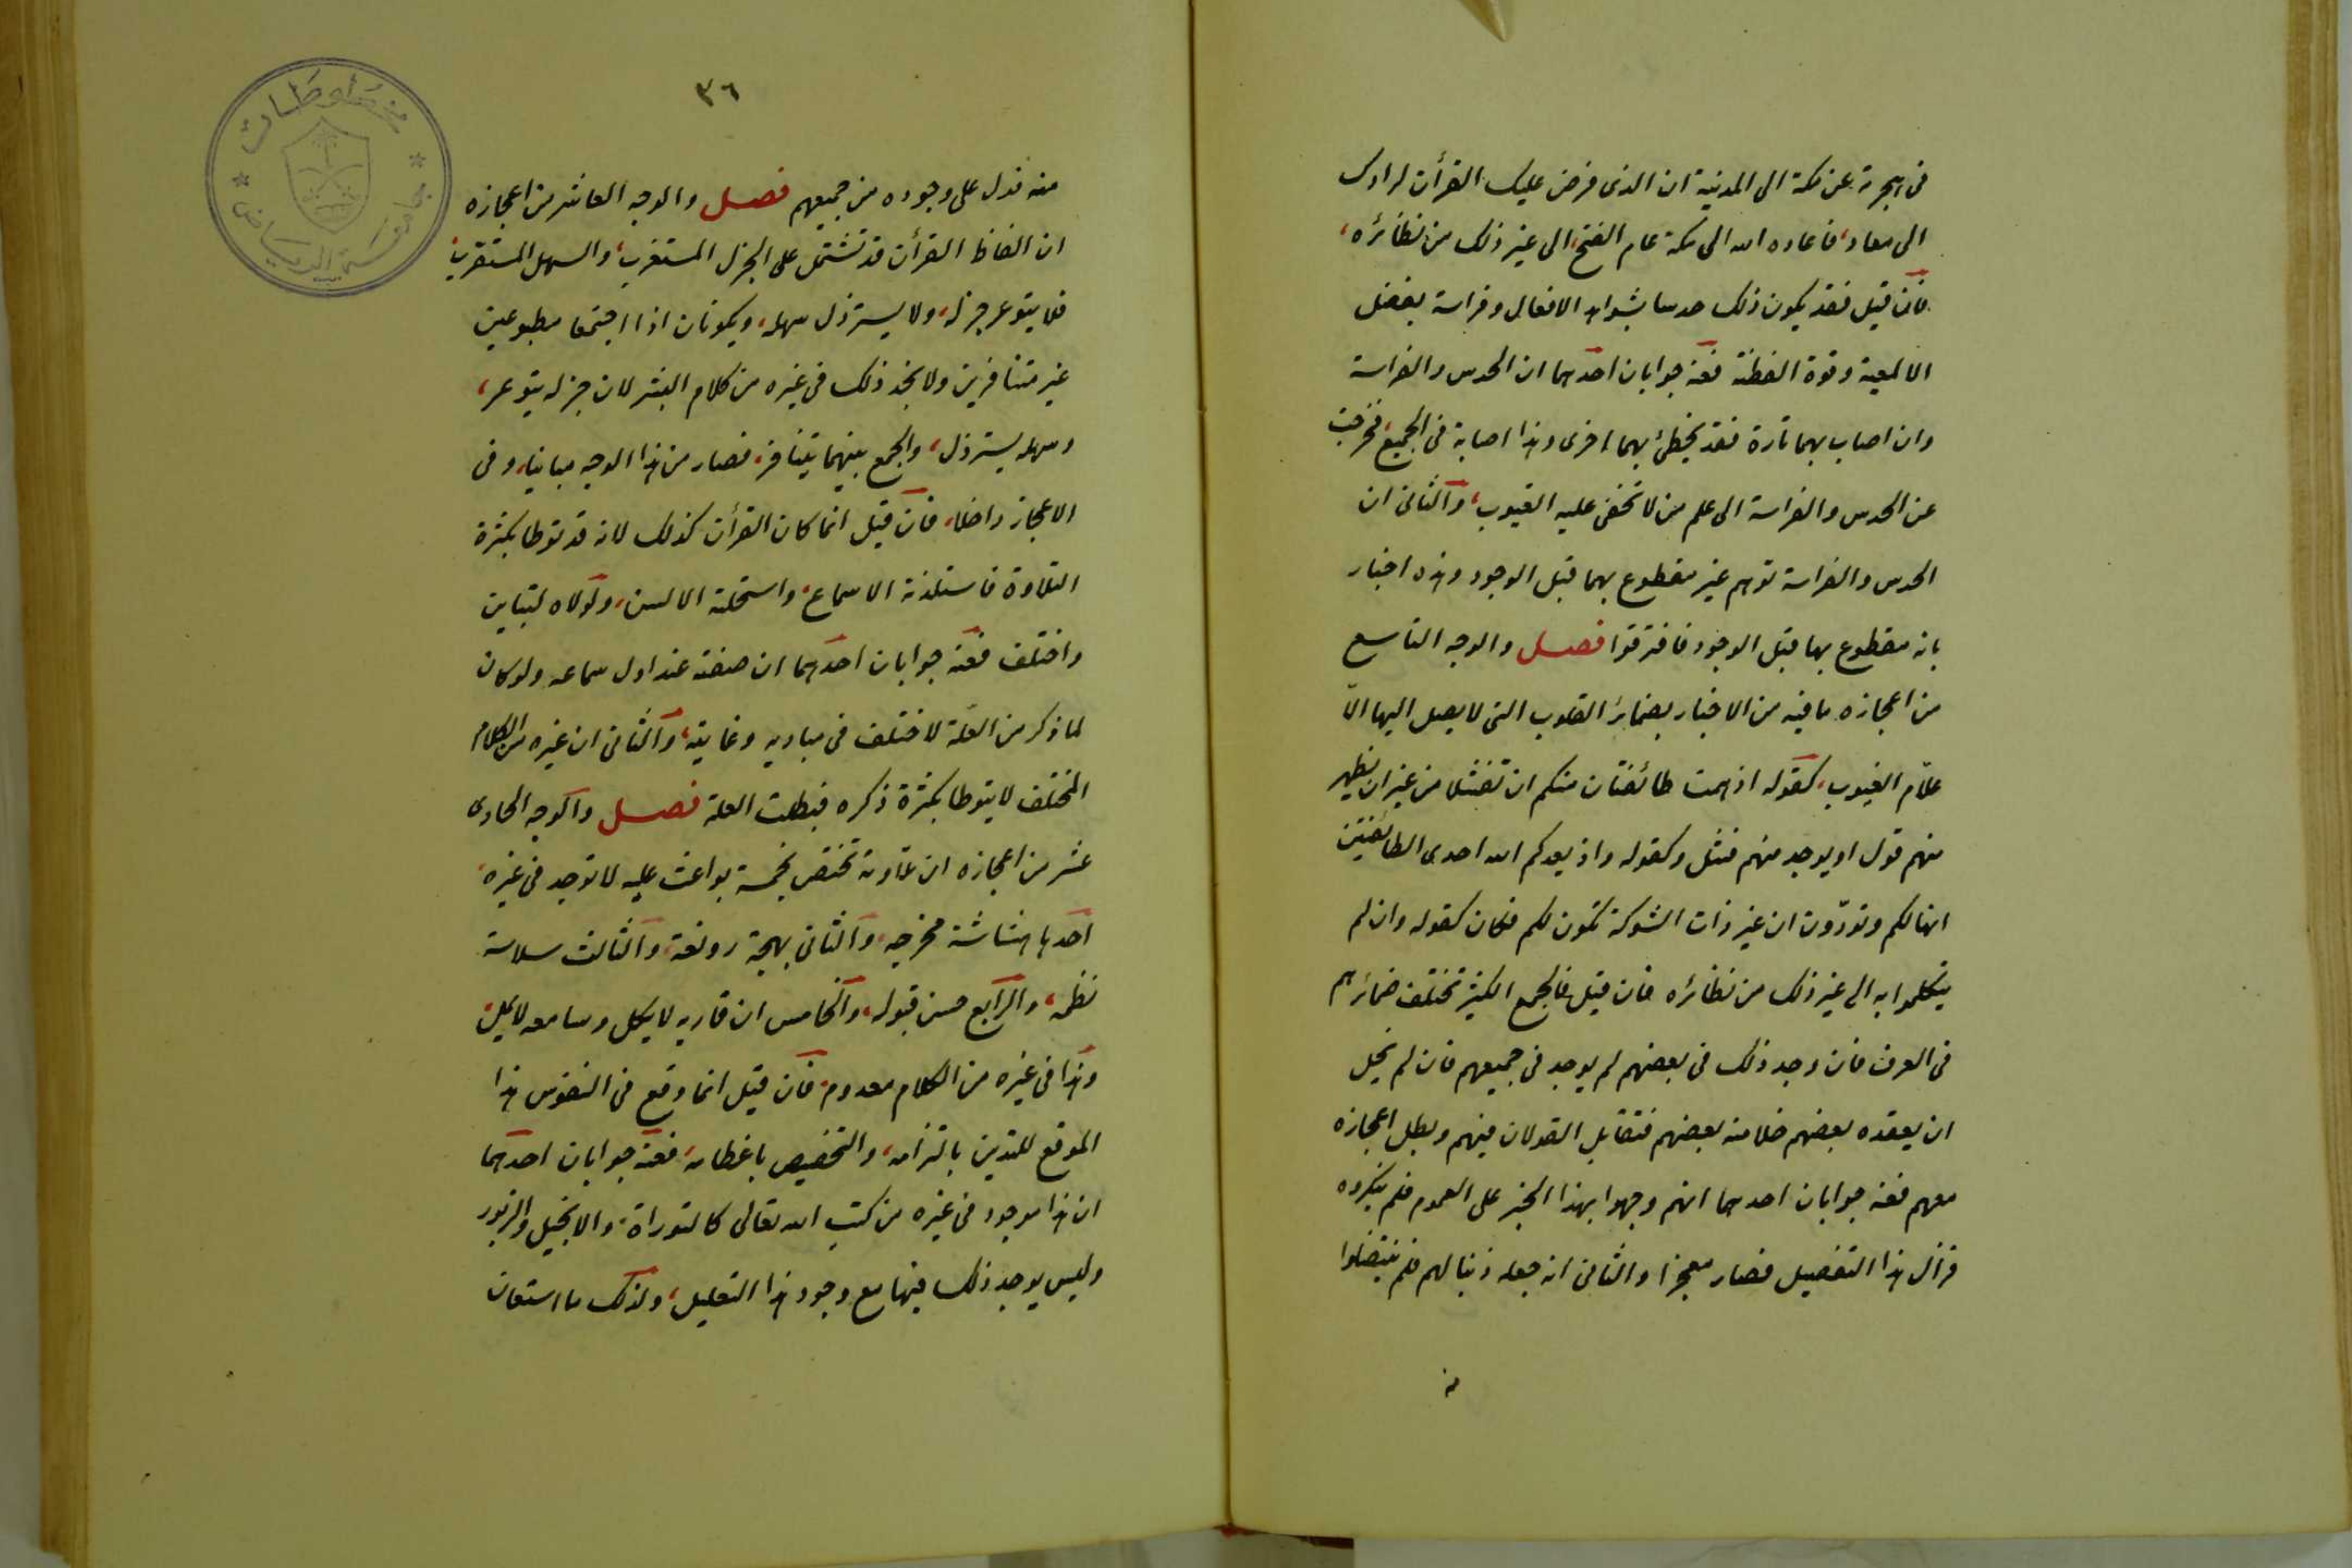 فى هجرته عن مكة الى المدينة ان الذى فرض عليك القرأن لرادك
الى معاد، فاعاده الله الى مكة عام الفتح، الى غير ذلك من نظائره،
فان قيل فقد يكون ذلك حدسا بشواهد الافعال وفراسة بفضل
الالمعية وقوة الفطنة فعنه جوابان احدهما ان الحدس والفراسة
وان اصاب بهما تارة فقد يخطئ بهما اخرى وهذا اصابة فى الجميع، فخرجت
عن الحدس والفراسة الى علم من لا تخفى عليه الغيوب، والثانى ان
الحدس والفراسة توهم غير مقطوع بهما قبل الوجود وهذه اخبار
بانه مقطوع بها قبل الوجود فافترقوا فصل والوجه التاسع
من اعجازه ما فيه من الاخبار بضمائر القلوب التى لا يصل اليها الّا
علّام الغيوب، كقوله اذ همت طائفتان منكم ان تفشلا من غير ان يظهر
منهم قول او يوجد منهم فشل وكقوله واذ يعدكم الله احدى الطائفتين
انها لكم وتودّون ان غير ذات الشوكة تكون لكم فكان كقوله وان لم
يتكلموا به الى غير ذلك من نظائره فان قيل فالجمع الكثير تختلف ضمائرهم
فى العرف فان وجد ذلك فى بعضهم لم يوجد فى جميعهم فان لم يخل
ان يعقده بعضهم خلا منه بعضهم فتقابل القولان فيهم وبطل اعجازه
معهم فعنه جوابان احدهما انهم وجهوا بهذا الخبر على العموم فلم ينكروه
فزال هذا التفصيل فصار معجزا والثانى انه جعله ذنبا لهم فلم ينتضلوا
منه
٣٦
منه فدل على وجوده من جميعهم فصل والوجه العاشر من اعجازه
ان الفاظ القرأن قد تشتمل على الجزل المستغرب، والسهل المستقرب،
فلا يتوعر جزله، ولا يسترذل سهله، ويكونان اذا اجتمعا مطبوعين
غير متنافرين ولا نجد ذلك فى غيره من كلام البشر لان جزله يتوعر،
وسهله يسترذل، والجمع بينهما يتنافر، فصار من هذا الوجه مباينا، وفى
الاعجاز داخلا، فان قيل انما كان القرأن كذلك لانه قد توطا بكثرة
التلاوة فاستلذته الاسماع، واستحلته الالسن، ولولاه لتباين
واختلف فعنه جوابان احدهما ان صفته عند اول سماعه ولو كان
لما ذكر من العلّة لاختلف فى مباديه وغايته، والثانى ان غيره من الكلام
المختلف لا يتوطا بكثرة ذكره فبطلت العلة فصل والوجه الحادى
عشر من اعجازه ان تلاوته تختص بخمسة بواعث عليه لا توجد فى غيره،
احدها هشاشة مخرجه، والثانى بهجة رونقه، والثالث سلاسة
نظمه، والرابع حسن قبوله، والخامس ان قاريه لا يكل وسامعه لا يمل،
وهذا فى غيره من الكلام معدوم، فان قيل انما وقع فى النفوس هذا
الموقع للتدين بالتزامه، والتخصيص باعظامه، فعنه جوابان احدهما
ان هذا موجود فى غيره من كتب الله تعالى كالتوراة، والانجيل والزبور
وليس يوجد ذلك فيها مع وجود هذا التعليل، ولذلك ما استعان
مخطوطات
جامعة الرياض